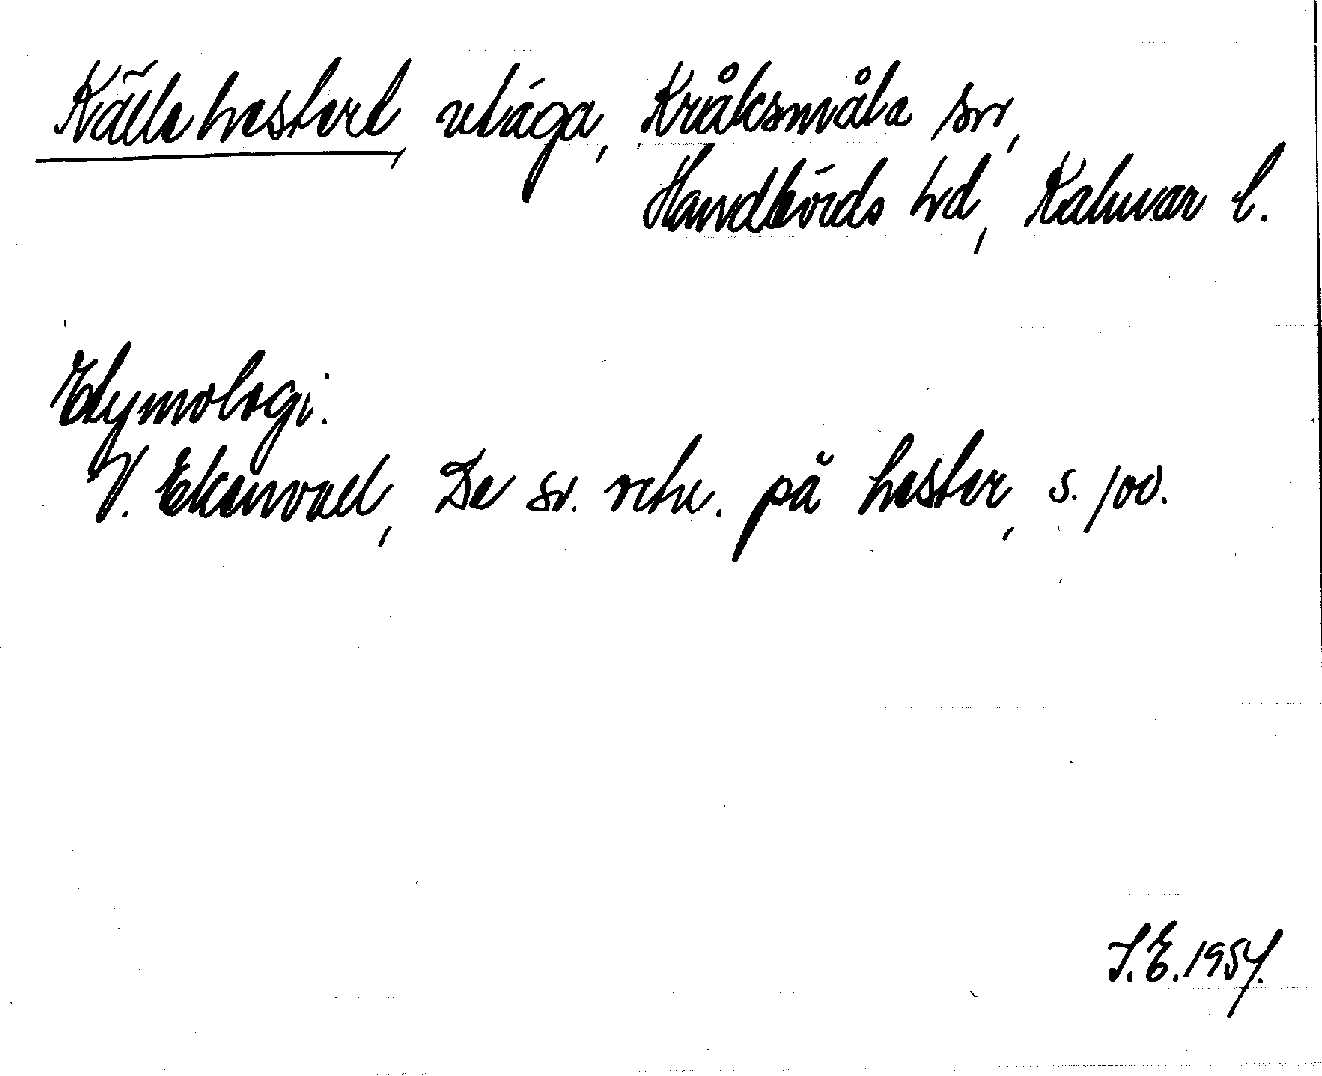 Källehestert, utäga, Kråksmåla sn,
Handbörds hd, Kalmar l.
Etymologi.
V. Ekenvall, De sv. ortn. på hester, s. 100.
S.E. 1957.